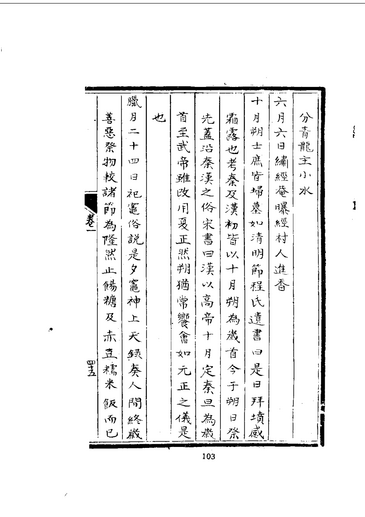 分青龍主小水
六月六日繡經菴曝經村人進香
十月朔士庶皆埽墓如清明節程氏遺書曰是日拜墳感
霜露也考秦及漢初皆以十月朔為歲首今于朔日祭
先蓋沿秦漢之俗宋書曰漢以高帝十月定秦旦為歲
首至武帝雖改用夏正然朔猶常饗會如元正之儀是
也
臘月二十四日祀竈俗説是夕竈神上天錄奏人間終歲
善惡祭物校諸節為隆然止餳糖及赤豆糯米飯而已
卷一
四五
103